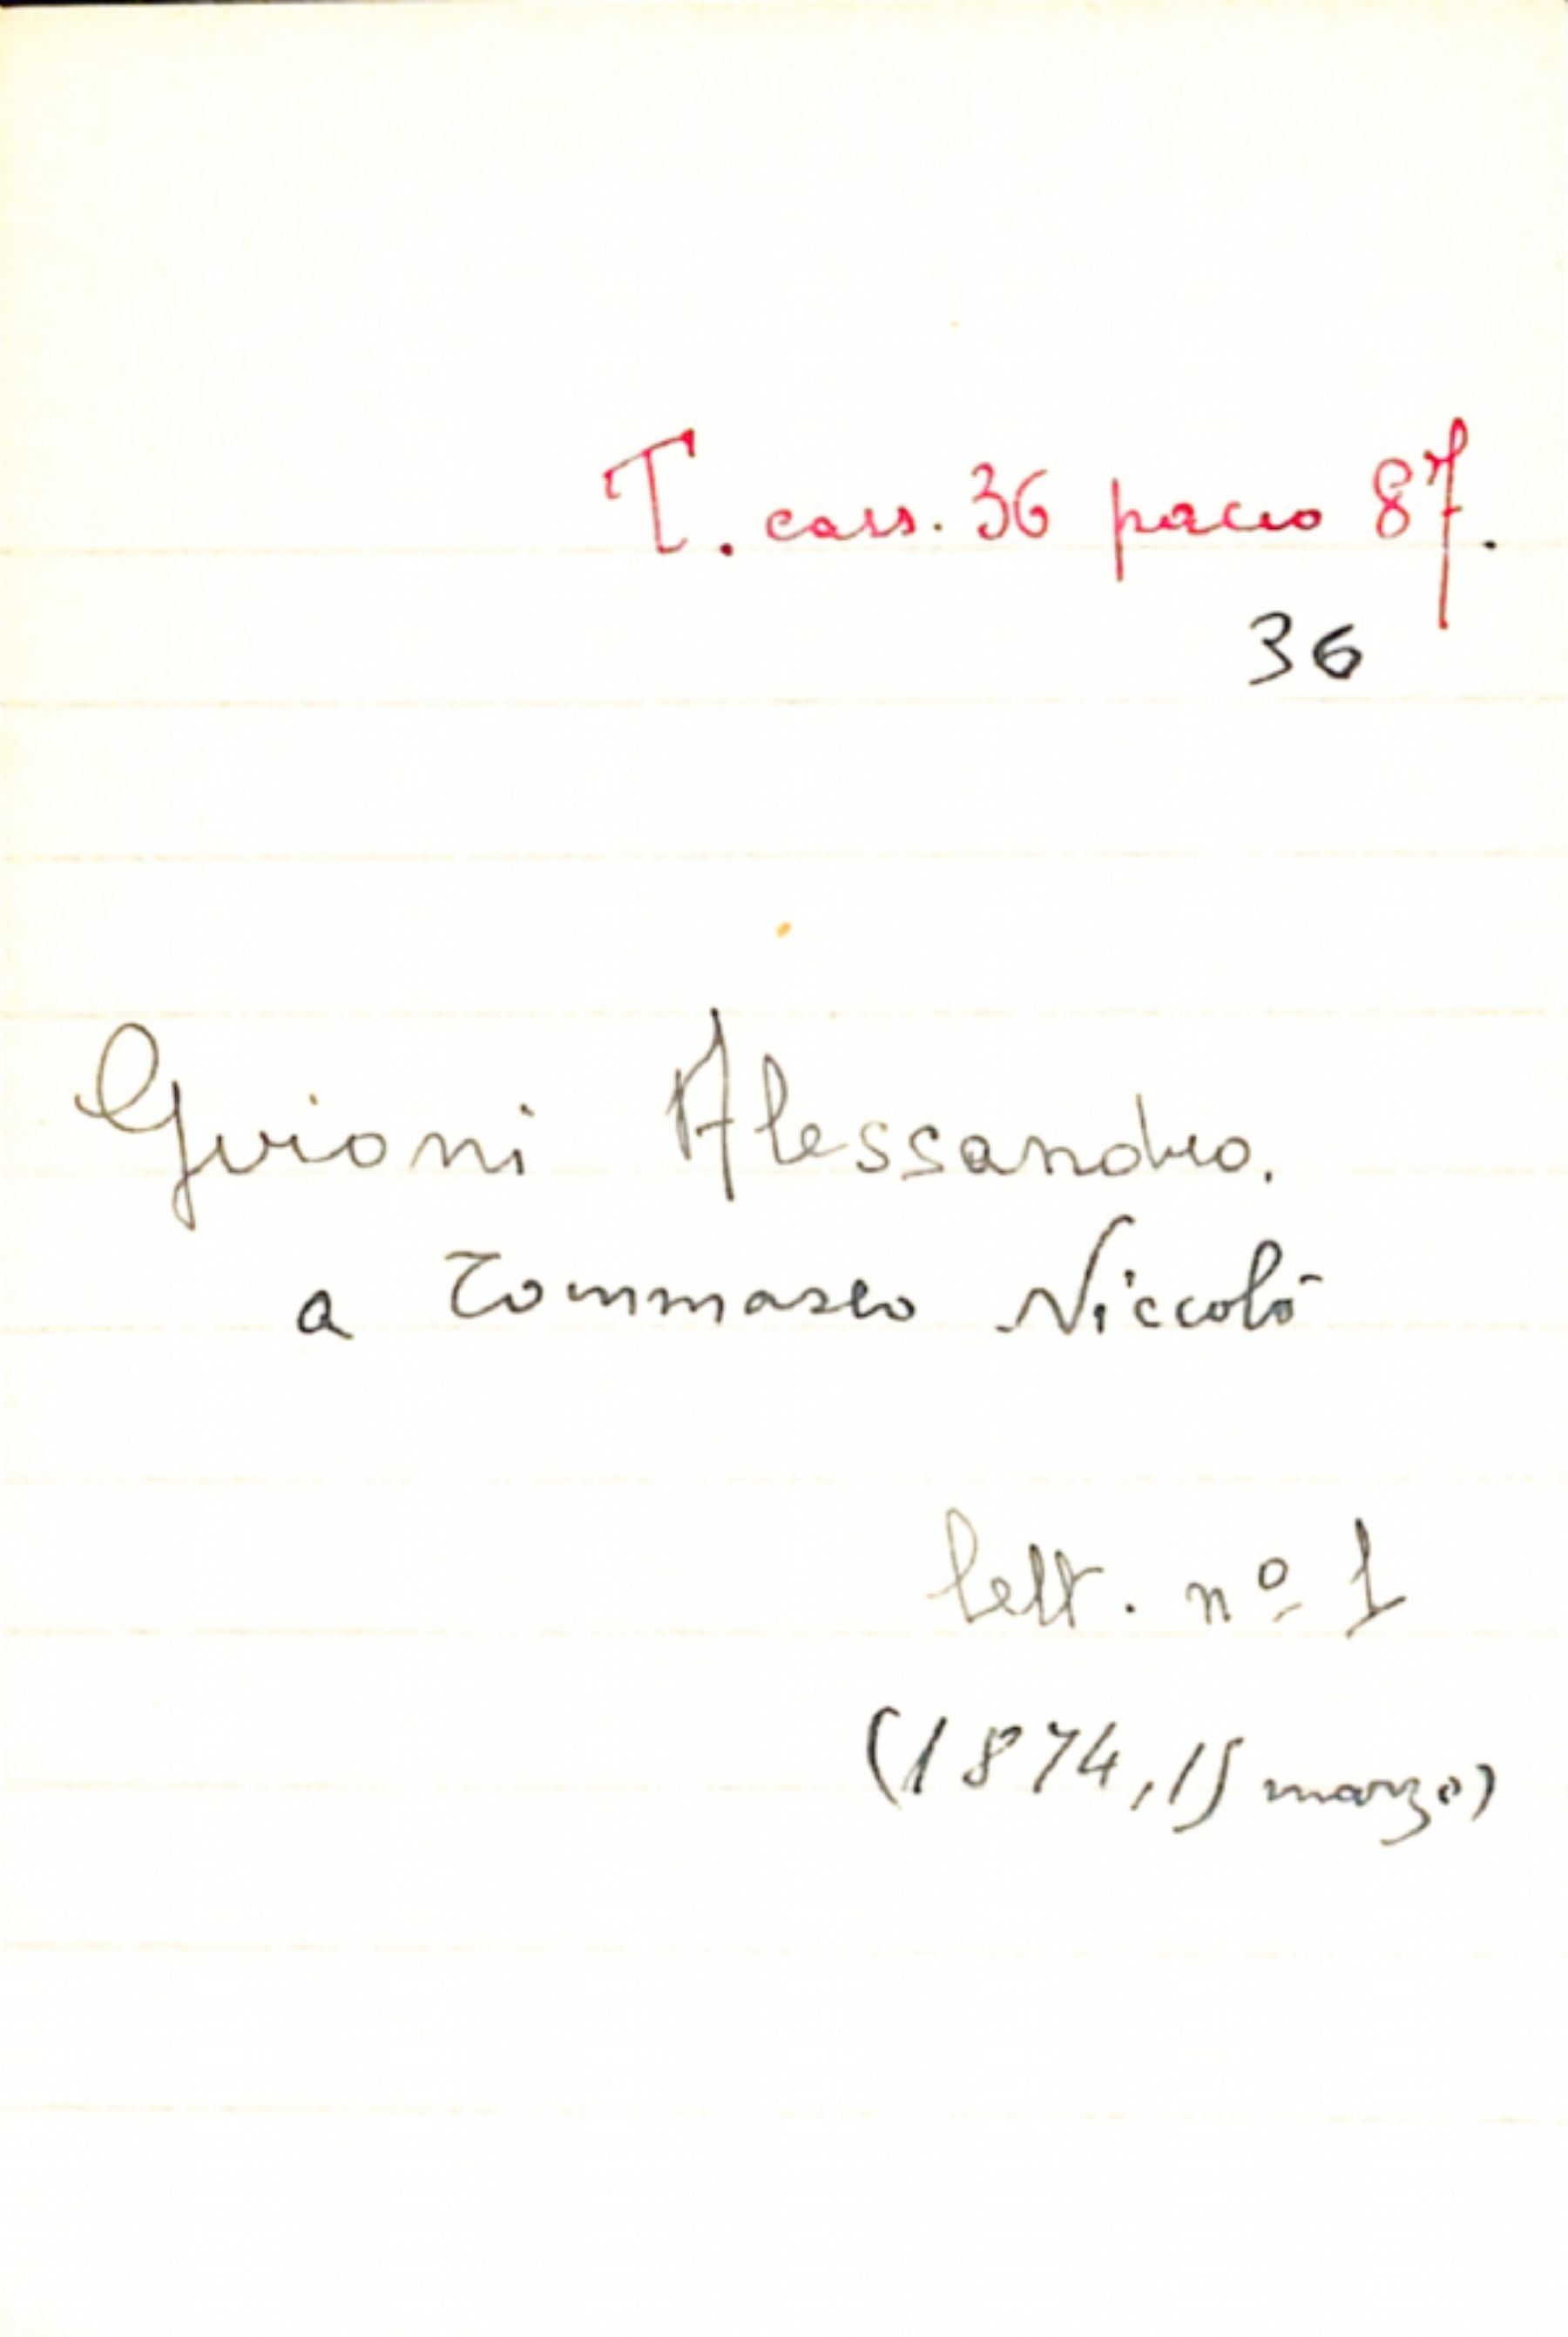 T. cass. 36 pacco 87.
36
Guioni Alessandro.
a Tommaseo Niccolò
lett. nº 1
(1874, 15 marzo)